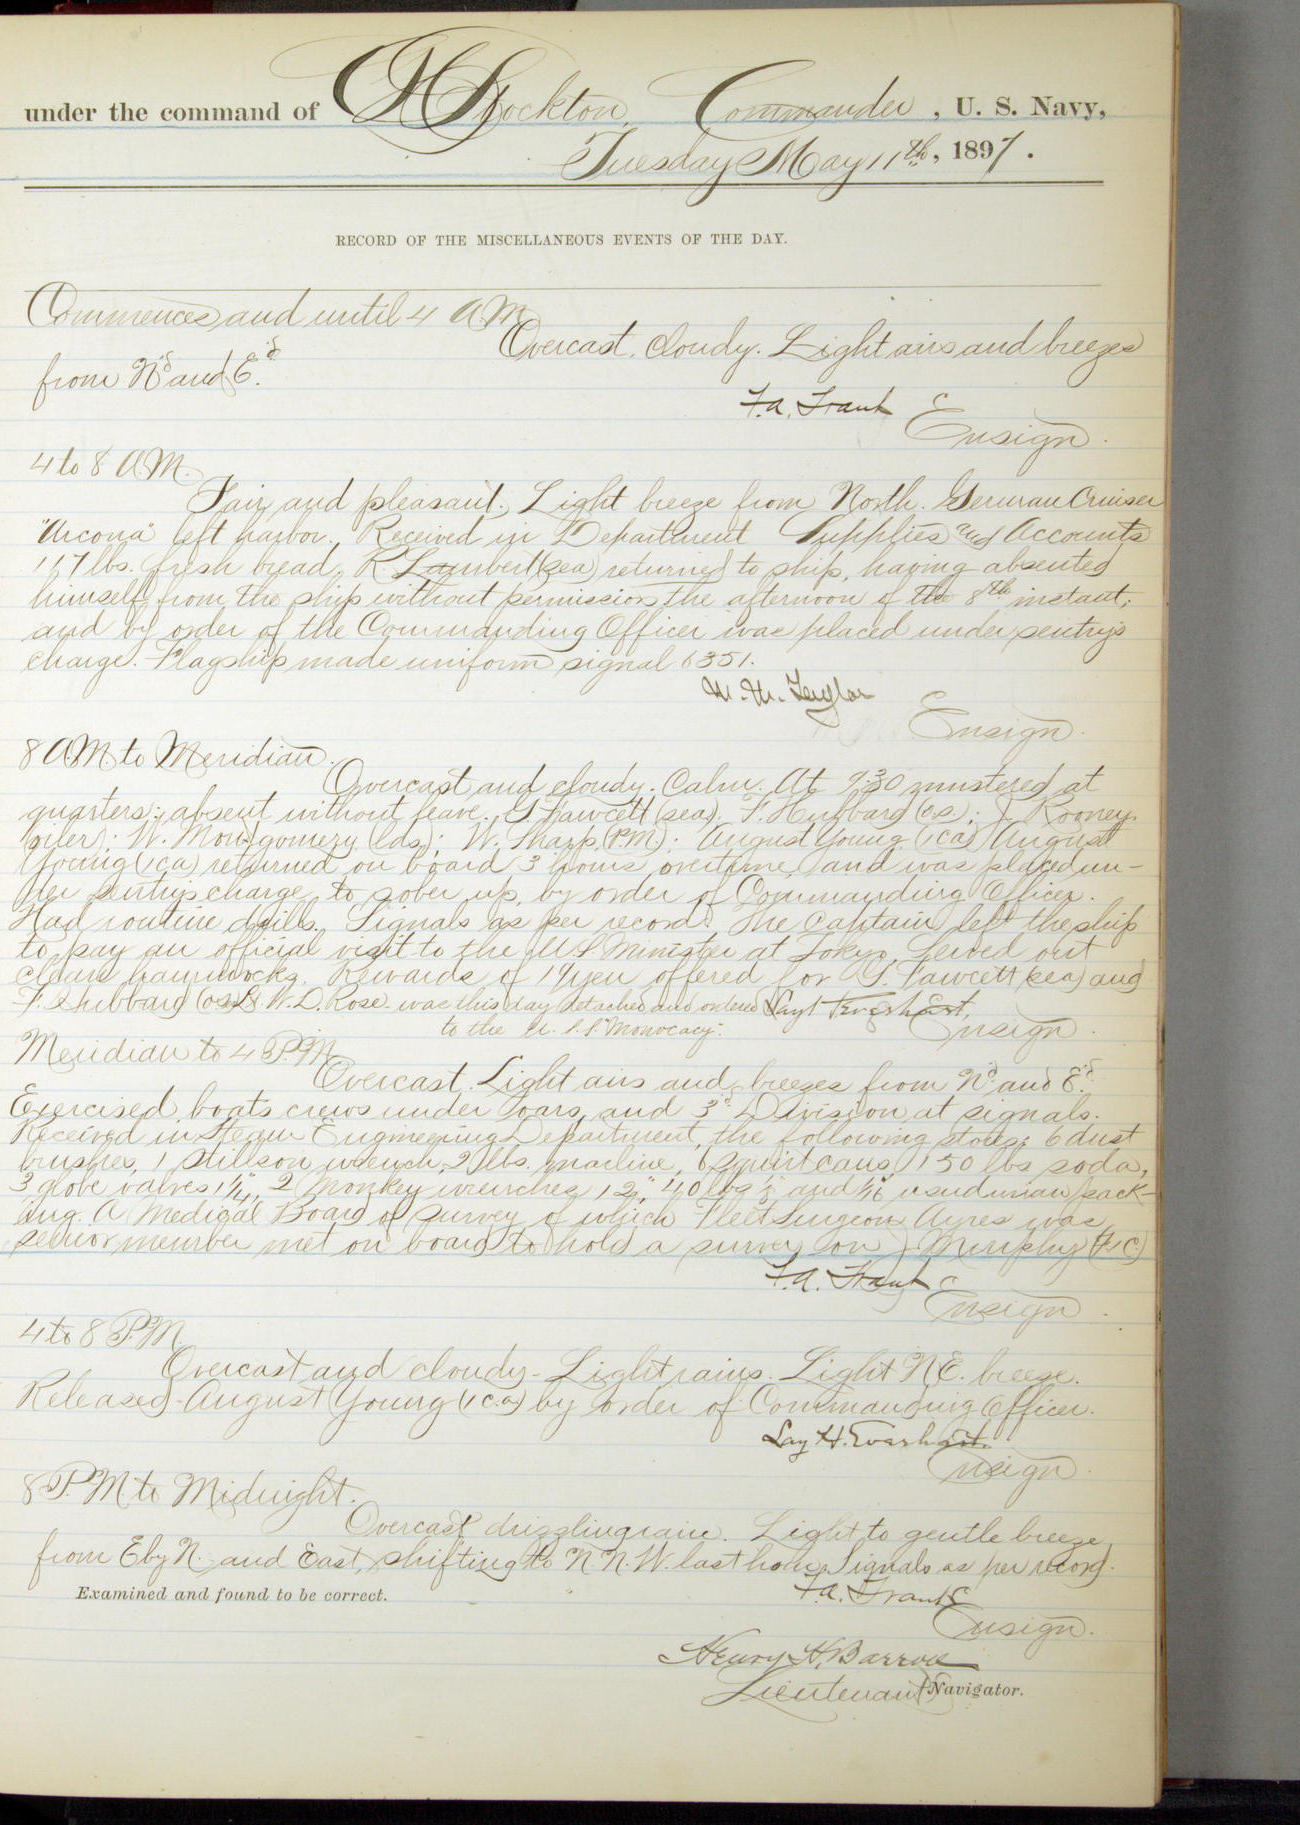 under the command of C H Stockton, Commander, U. S. Navy,
Tuesday May 11th, 1897.
RECORD OF THE MISCELLANEOUS EVENTS OF THE DAY.
Commences and until 4 A.M.
Overcast, cloudy. Light airs and breezes
from N'd and E'd.
F.A. Traut
Ensign.
4 to 8 A.M.
Fair and pleasant, Light breeze from North. German Cruiser
"Arcona" left harbor. Received in Department Supplies and Accounts
117 lbs. fresh bread. R Lambert (sea) returned to ship, having absented
himself from the ship without permission the afternoon of the 8th instant;
and by order of the Commanding Officer was placed under sentry's
charge. Flagship made uniform signal 6351.
Taylor
Ensign.
8 A.M. to Meridian.
Overcast and cloudy. Calm. At 9:30 mustered at
quarters; absent without leave. S. Fawcett (sea). F. Hubbard (o.s.; J. Rooney,
oiler); W. Montgomery (lds); W. Sharp (P.M.); August Young (1ca) August
Young (1ca) returned on board 3 hours overtime, and was placed un-
der sentry's charge, to sober up, by order of Commanding Officer.
Had routine drills. Signals as per record. The Captain left the ship
to pay an official visit to the U.S. Minister at Tokyo. Served out
clean hammocks. Rewards of yen offered for S. Fawcett (sea) and
F. Hubbard (o.s.) W. D. Rose was this day detached and ordered Lay H. Everhart,
to the U.S.S. "Monocacy". Ensign.
Meridian to 4 P.M.
Overcast. Light airs and breezes from N'd and E'd.
Exercised boats crews under oars and 3d Division at signals.
Received in Steam Engineering Department, the following stores: 6 dust
brushes, 1 stillson wrench, 2 lbs. marline, 6 squirt cans, 150 lbs soda,
3 globe valves 1¼", 2 Monkey wrenches 12", 40 lbs ⅛" and 1/16" usudurian pack-
ing. A Medical Board of survey of which Fleet Surgeon Ayres was
senior member met on board to hold a survey on J. Murphy (F1C)
F.A. Traut
Ensign.
4 to 8 P.M.
Overcast and cloudy - Light rains. Light N.E. breeze.
Released August Young (1c.a) by order of Commanding Officer.
Lay H. Everhart.
Ensign.
8 P.M. to Midnight.
Overcast, drizzling rain. Light to gentle breeze
from E by N. and East, shifting to N.N.W. last hour. Signals as per record.
Examined and found to be correct.
F.A. Traut
Ensign.
Henry H. Barroll
Lieutenant, Navigator.